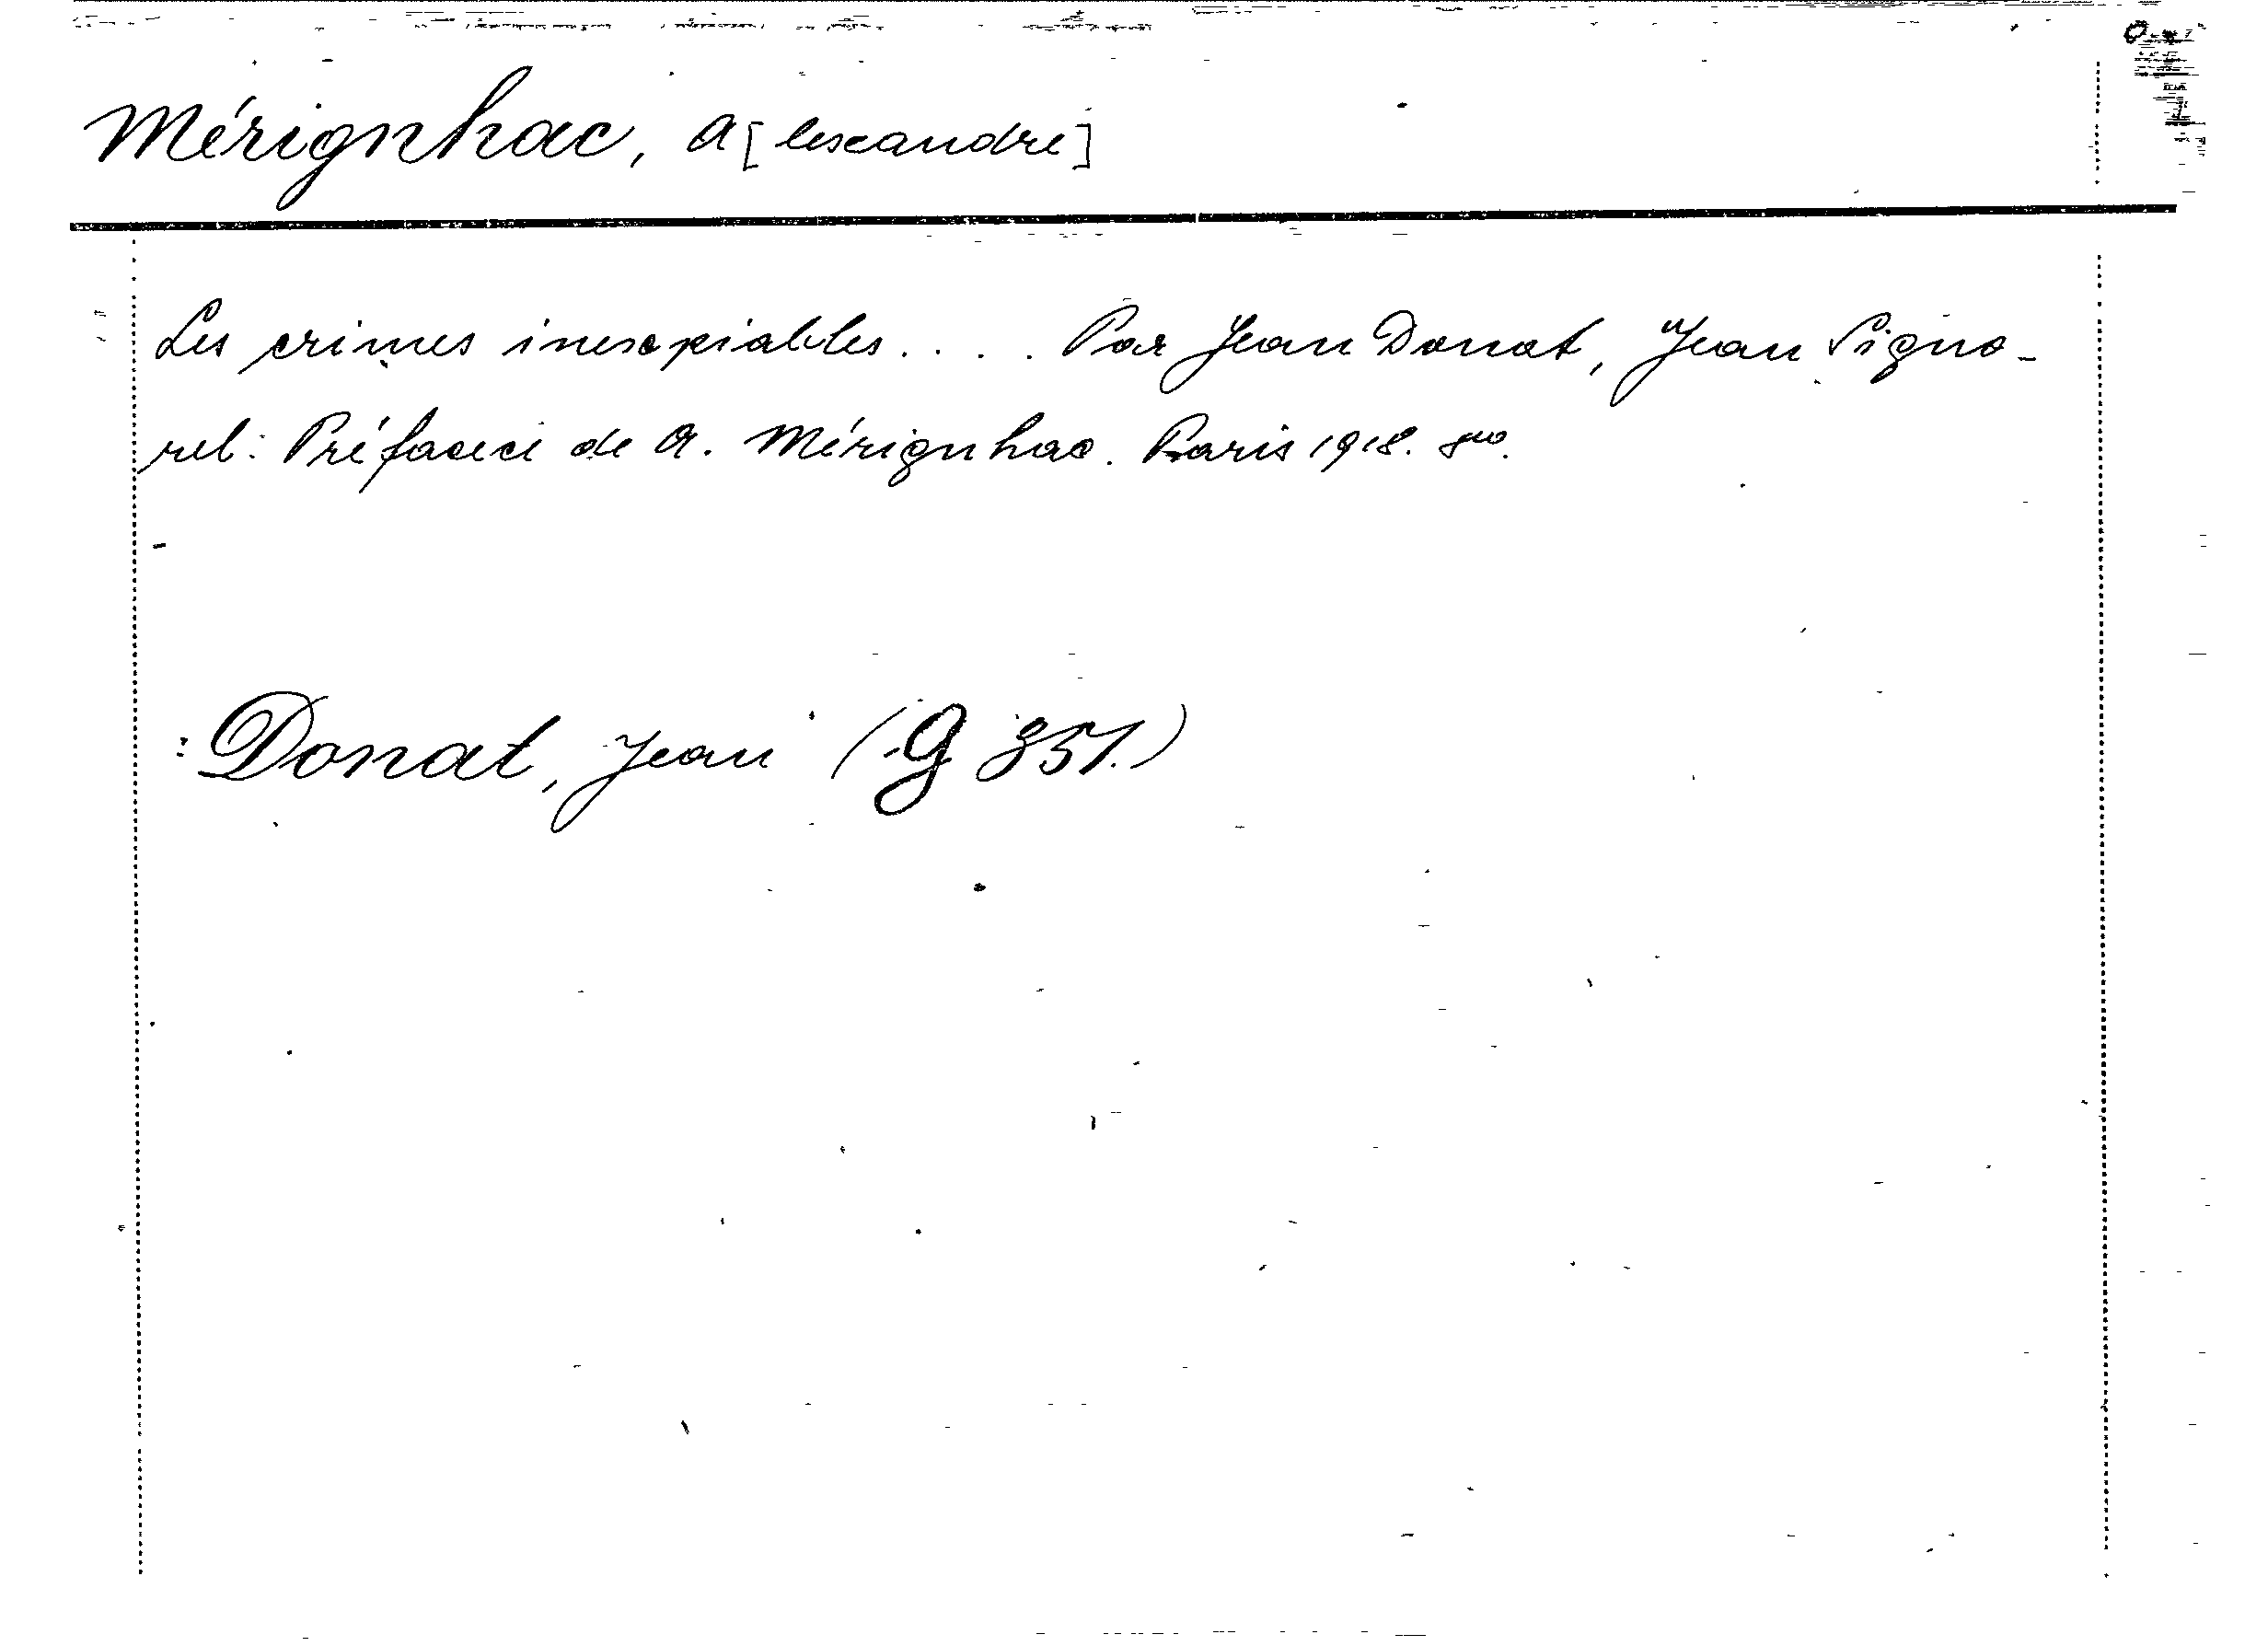 Mérignhac, A[lexandre]
Les crimes inexpiables. . . . Par Jean Donat, Jean Signo-
rel: Préfacici de A. Mérignhac. Paris 1918. 8vo.
: Donat, Jean (G 351.)